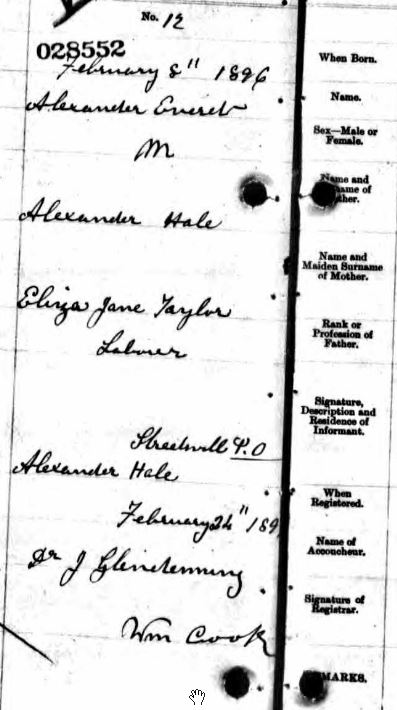 No. 12
028552
February 8" 1896
When Born.
Alexander Everet
Name.
M
Sex—Male or
Female.
Alexander Hale
Name and
Eliza Jane Taylor
Name and
Maiden Surname
of Mother.
Laborer
Rank or
Profession of
Father.
Streetsville P.O
Alexander Hale
Signature,
Description and
Residence of
Informant.
February 24" 189
When
Registered.
Dr J Glendenning
Name of
Accoucheur.
Wm Cook
Signature of
Registrar.
MARKS.